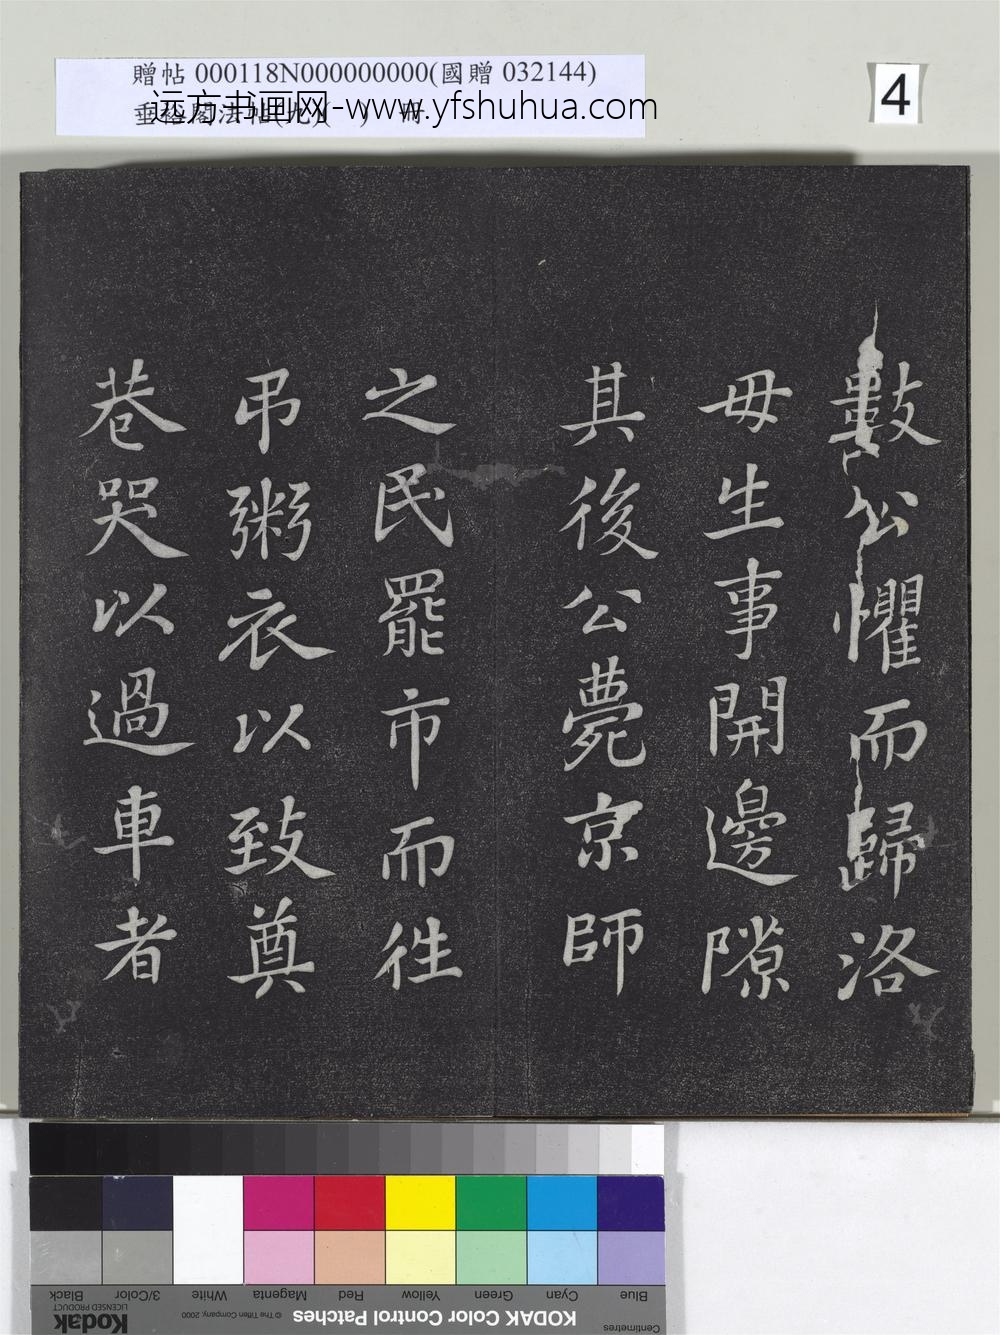 贈帖 000118N000000000(國贈 032144)
远方书画网-www.yfshuhua.com
4
數公懼而歸洛
毋生事開邊隙
其後公薨京師
之民罷市而徃
弔粥衣以致奠
巷哭以過車者
Centimetres
Blue
Cyan
Green
Yellow
Red
Magenta
White
3/Color
Black
KODAK Color Control Patches
© The Tiffen Company, 2000
Kodak
LICENSED PRODUCT